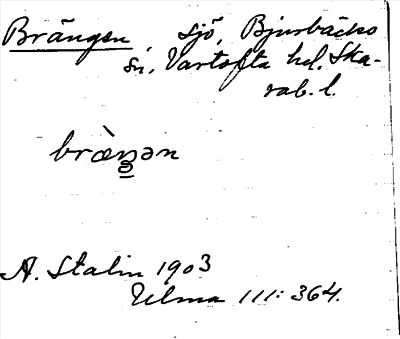 Brängen sjö, Bjurbäcks
sn. Vartofta hd. Ska-
rab. l.
bræ̀ŋən
A. Stalin 1903
Ulma 111:364.